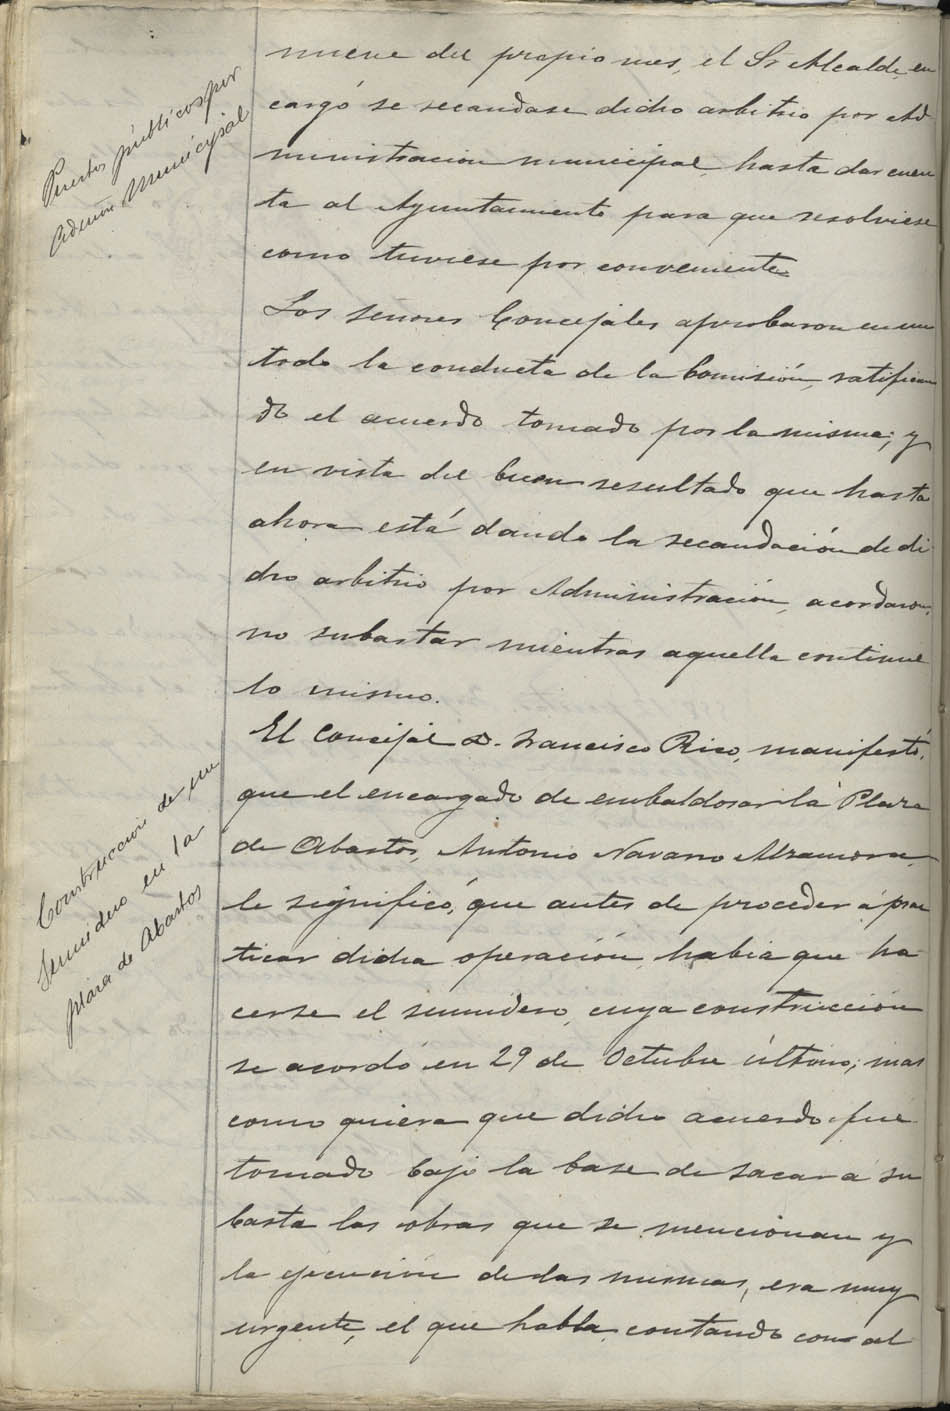 Puestos públicos por
Admón Municipal
nueve del propio mes, el Sr Alcalde en
cargó se recaudase dicho arbitrio por Ad
ministracion municipal, hasta dar cuen
ta al Ayuntamiento para que resolviese
como tuviese por conveniente
Los señores Concejales aprobaron en un
todo la conducta de la Comisión, ratifican
do el acuerdo tomado por la misma; y
en vista del buen resultado que hasta
ahora está dando la recaudación de di
cho arbitrio por Administración, acordaron,
no subastar mientras aquella continue
lo mismo.
Construccion de un
sumidero en la
plaza de Abastos
El Concejal D. Francisco Rico, manifestó,
que el encargado de embaldosar la Plaza
de Abastos, Antonio Navarro
le significó, que antes de proceder á prac
ticar dicha operación, habia que ha
cerse el sumidero, cuya construcción
se acordó en 29 de Octubre último; mas
como quiera que dicho acuerdo fué
tomado bajo la base de sacar á su
basta las obras que se mencionan y
la ejecución de las mismas, era muy
urgente, el que habla contando con el